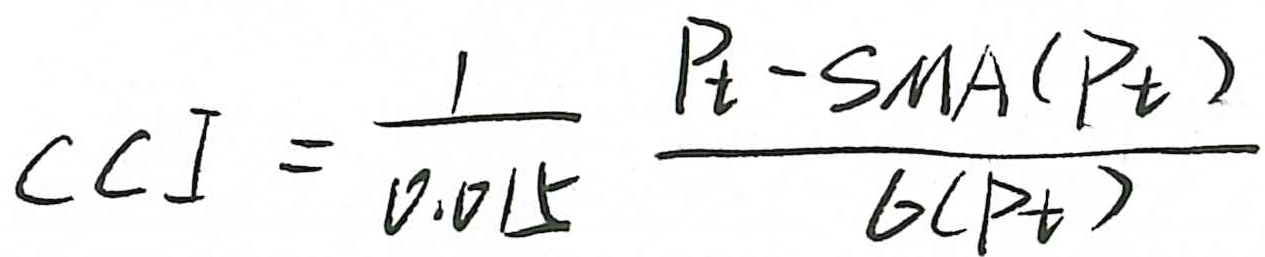 CCI = \frac{1}{0.015} \frac{P_t - SMA(P_t)}{σ(P_t)}